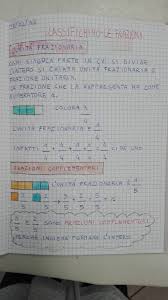 CLASSIFICHIAMO LE FRAZIONI
UNITÀ FRAZIONARIA
OGNI SINGOLA PARTE IN CUI SI DIVIDE
L'INTERO SI CHIAMA UNITÀ FRAZIONARIA O
FRAZIONE UNITARIA.
LA FRAZIONE CHE LA RAPPRESENTA HA COME
NUMERATORE 1.
COLORA 3/4
L'UNITÀ FRAZIONARIA È 1/4
INFATTI
FRAZIONI COMPLEMENTARI
L'UNITÀ FRAZIONARIA È 1/8
SONO FRAZIONI COMPLEMENTARI
PERCHÉ INSIEME FORMANO L'INTERO